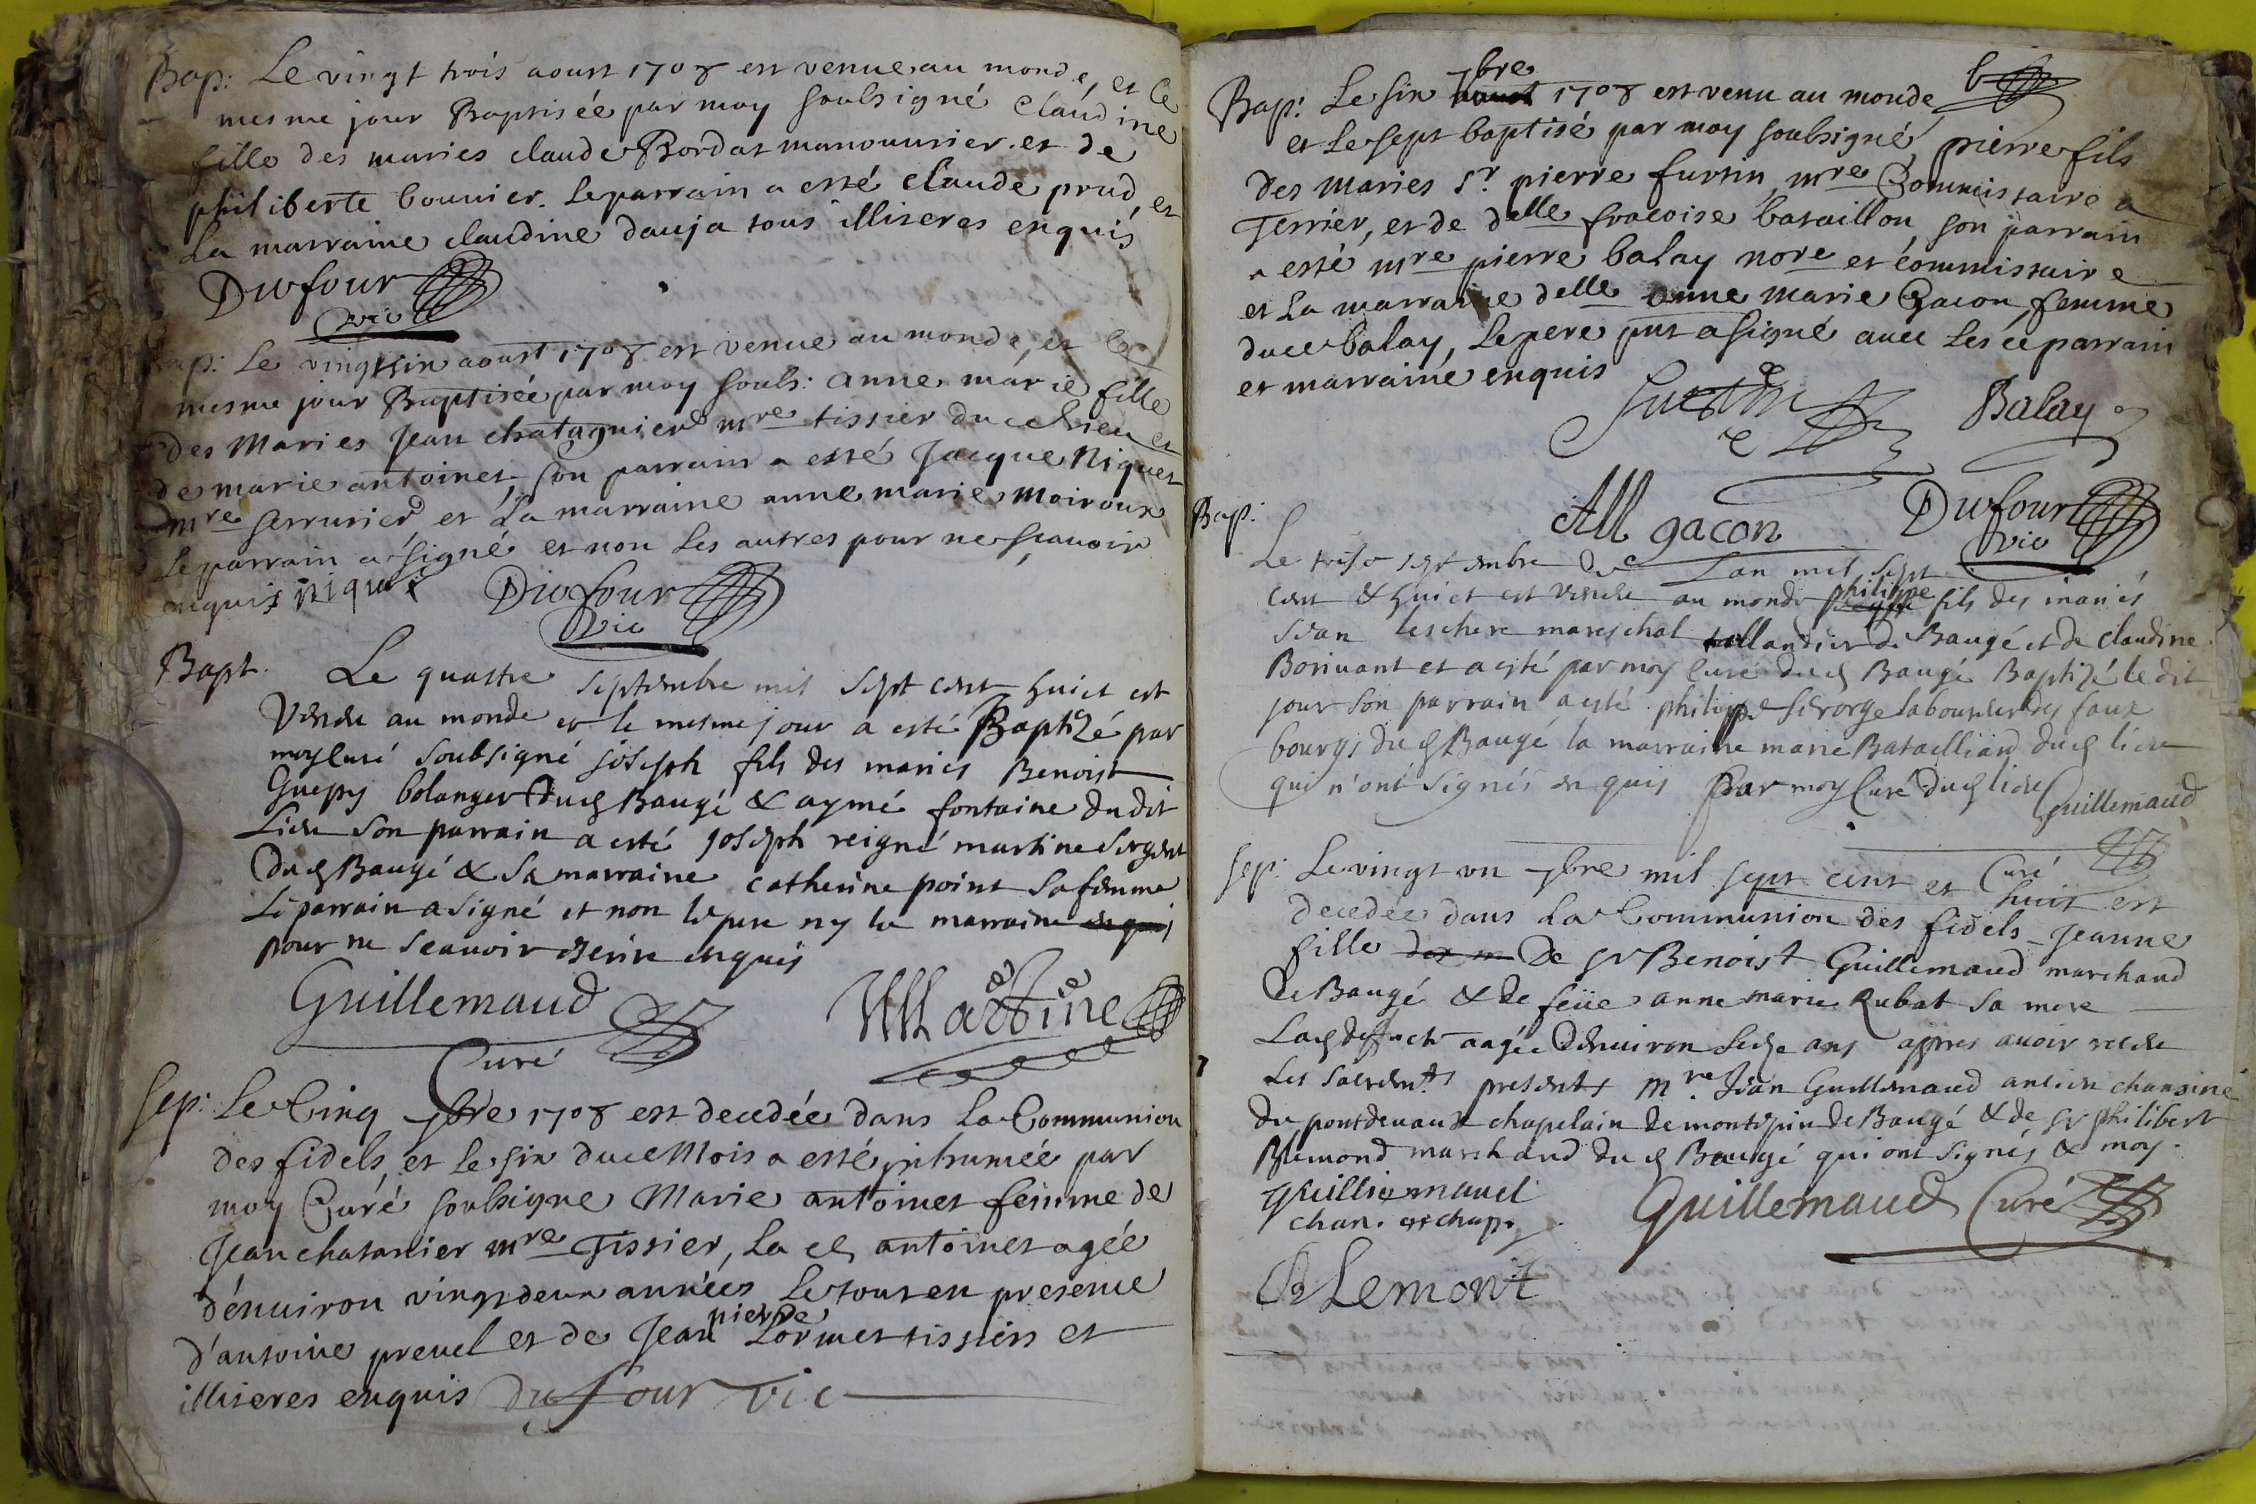 Bap: Le vingt trois aoust 1708 est venue au monde, et le
mesme jour Baptisée par moy soubsigné Claudine
fille des maries claude Bordat manouurier et de
philiberte bouuier. Le parrain a esté claude prud, et
La marraine claudine dauja tous illiteres enquis
Dufour
vic
Bap: Le vingt six aoust 1708 est venue au monde, et le
mesme jour Baptisée par moy soubs: anne marie fille
des Maries Jean chatagnier mre tissier duce lieu et
de marie antoinet, son parrain a esté Jacque Niquet
mre serrurier et La marraine anne marie moiroux
Le parrain a signé et non Les autres pour ne sçauoir
enquis niquet Dufour
vic
Bapt. Le quattre septembre mil sept cent huict est
Venu au monde et le mesme jour a esté Baptizé par
moy curé soubsigné joseph fils des mariés Benoist
Guepy bolanger dud Baugé & aymé fontaine du dit
Lieu son parrain a esté joseph reigné martine sergent
dud Baugé & sa marraine catherine point sa femme
Le parrain a signé et non le pere ny la marraine enquis
pour ne sçauoir escrire enquis
Guillemaud Martine
Curé
Sep: Le Cinq 7bre 1708 est decedée dans La Communion
des fidels et Le six duce Mois a esté inhumée par
moy Curé soubsigne Marie antoinet femme de
Jean chatanier mre Tissier, La d antoinet agée
d'énuiron vingt deux années Le tout en presence
d'antoine preuel et de Jean pierre Lormet tissiers et
illiteres enquis Dufour vic
Bap: Le six aoust 7bre 1708 est venu au monde
et Le sept baptisé par moy soubsigné, pierre fils
des Maries sr pierre furtin mre Commissaire a
Terrier, et de delle fracoise bataillon, son parrain
a esté mre pierre balay nore et commissaire
et La marraine delle anne marie Gacon, femme
duce balay, Le pere put a signé auec Les ce parrain
et marraine enquis
furtin Balay
AM gacon Dufour
vic
Bap:
Le trese septembre de Lan mil sept
cent & huict est venu au monde philippe fils des mariés
Jean leschere mareschal tallandier de Baugé et de claudine
Boriuant et a esté par moy curé dud Baugé Baptizé le dit
jour son parrain a esté philippe george laboureur des faux
bourgs dud Baugé la marraine marie Batailliard dud lieu
qui n'ont signés enquis Par moy Curé dud lieu Guillemaud
Curé
Sep: Le vingt vn 7bre mil sept cent et huit est
decedée dans La Communion des fidels Jeanne
fille des m De sr Benoist Guillemaud marchand
de Baugé & de feüe anne marie Rubat sa mere
Lad deffuncte aagée d'enuiron seize ans appres auoir receu
Les sacremts presents mre Jean Guillemaud ancien chanoine
du pontdevaux chapelain de montepin de Baugé & de sr philibert
Blemond marchand dud Baugé qui ont signés & moy.
Guilliemaud
chan. et chap. Guillemaud Curé
Blemont